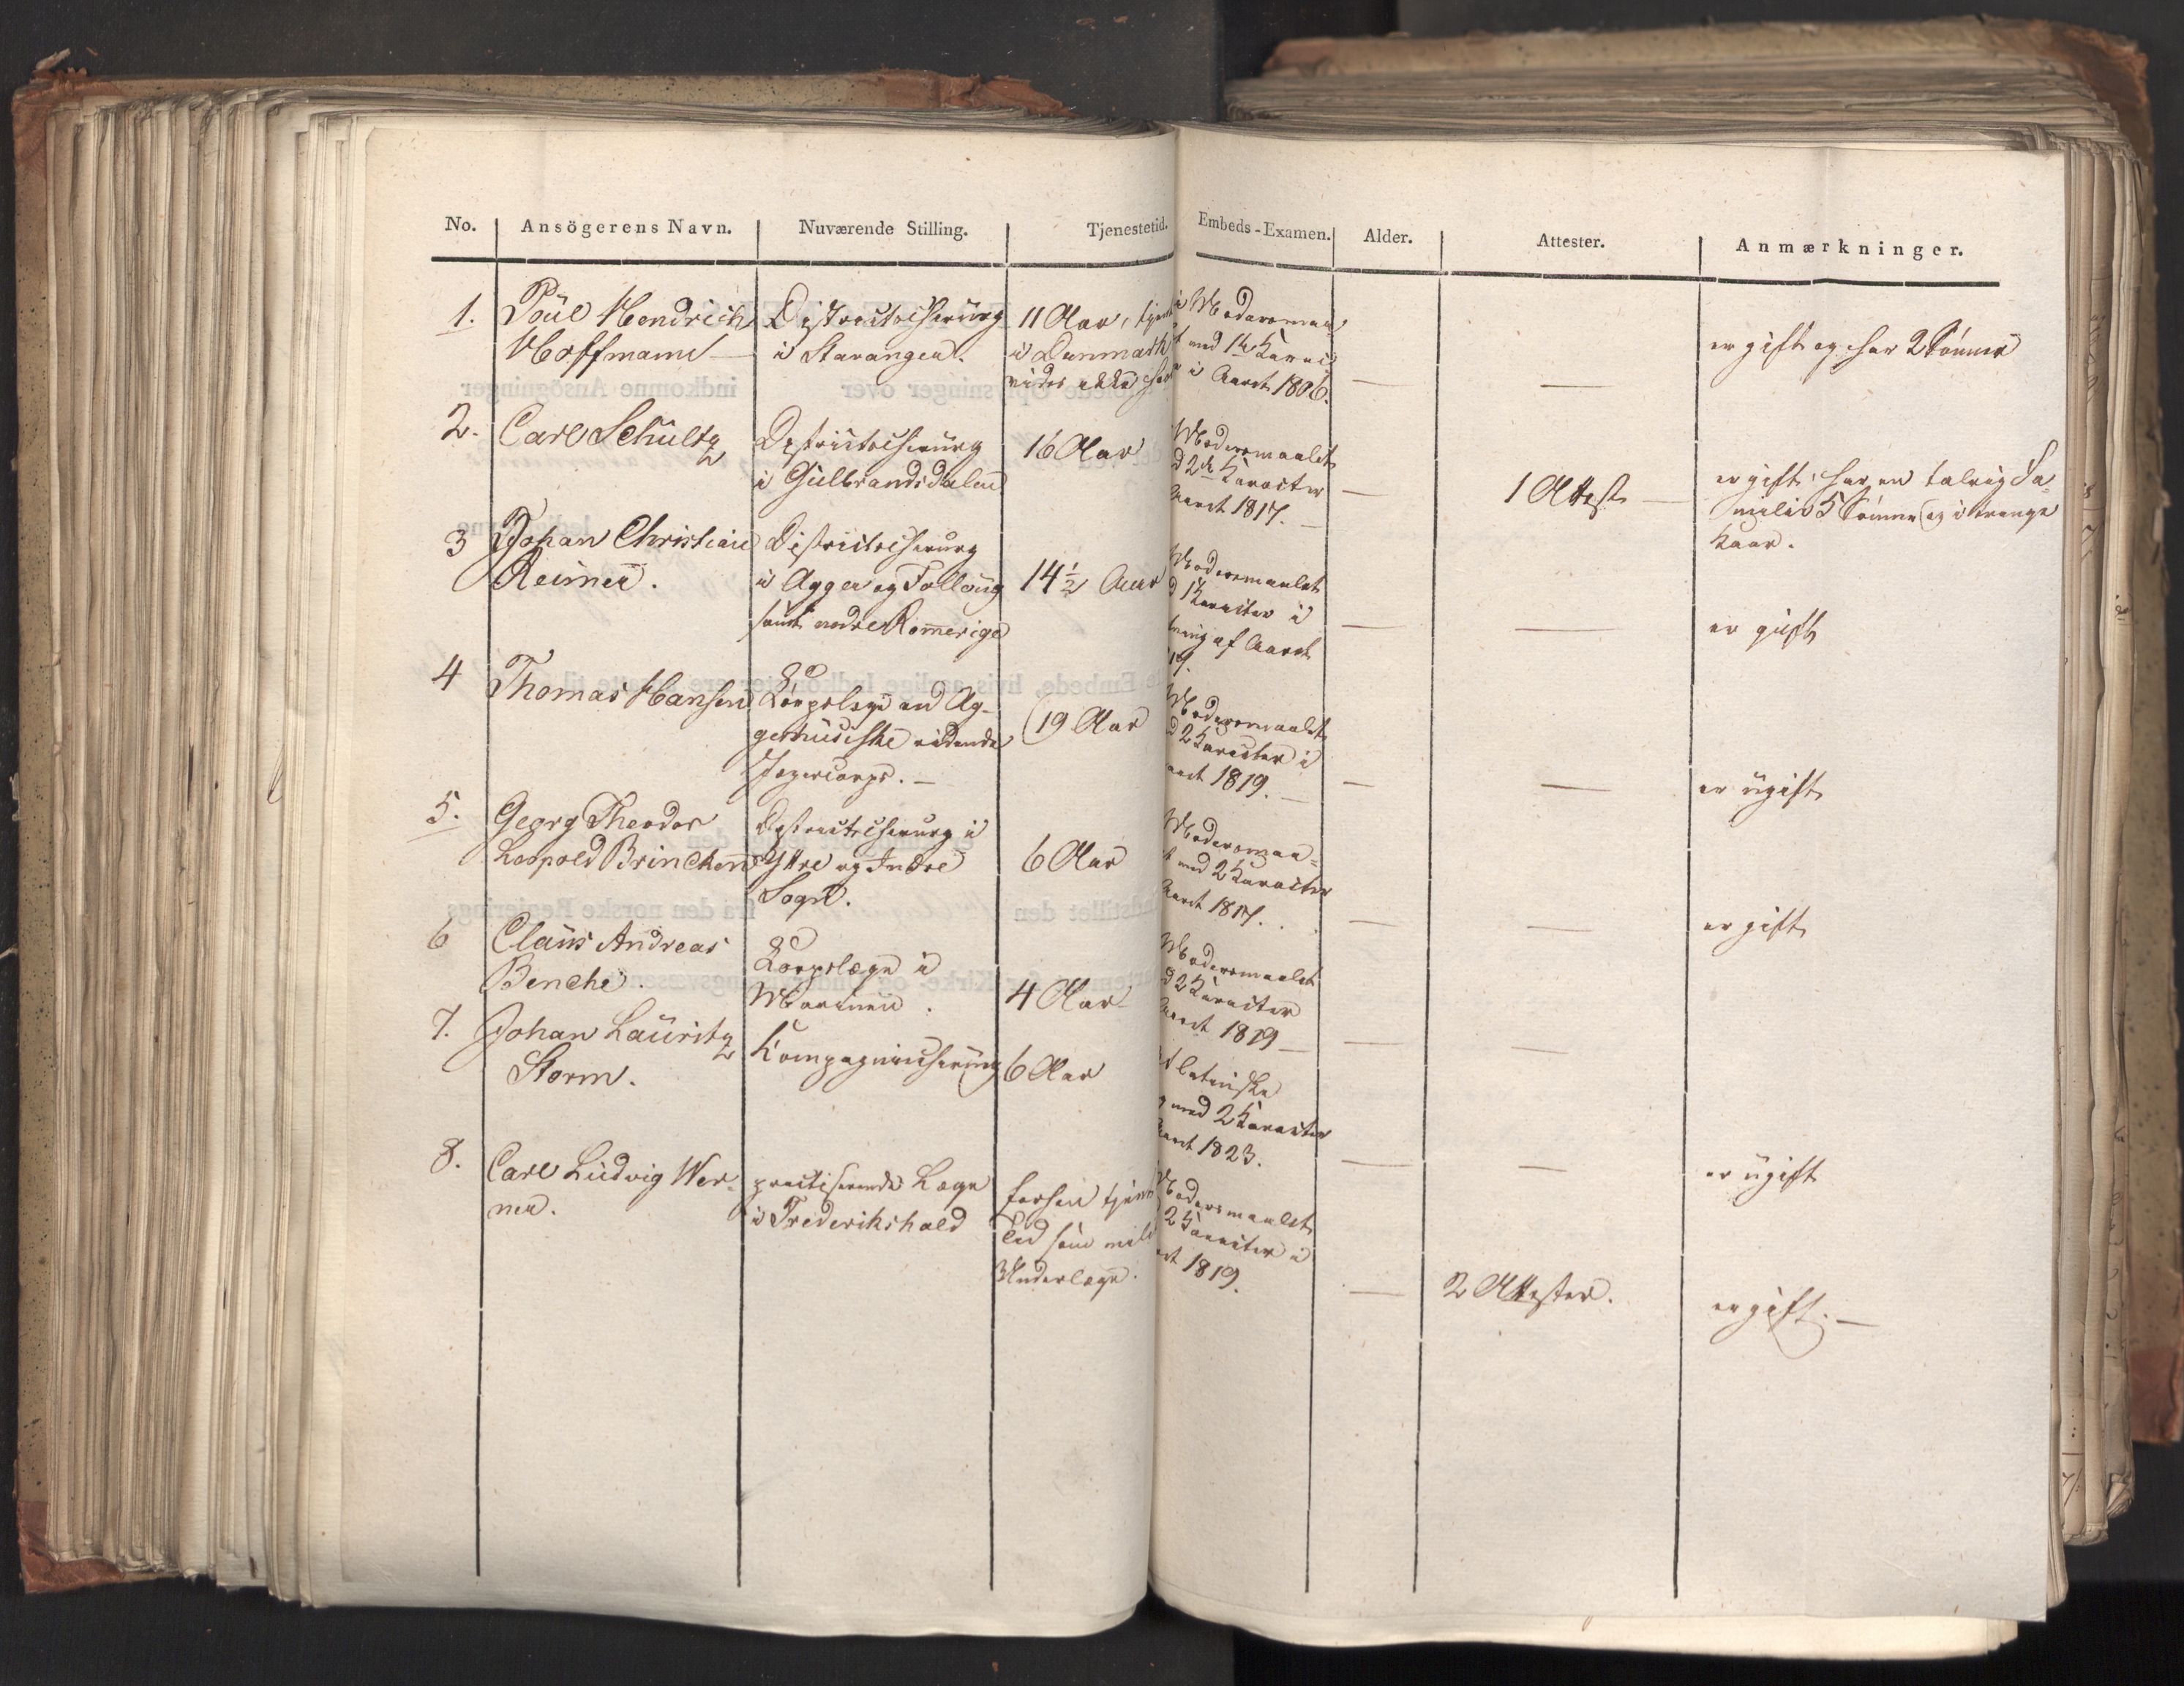 No. Ansögerens Navn. Nuværende Stilling. Tjenestetid. Embeds-Examen. Alder. Attester. Anmærkninger.
1. Poul Hendrich
Hoffmann
Districtschirurg
i Stavanger.
11 Aar,
i Danmark
vides ikke
i Modersmaa-
med 1ste Karac
i Aaret 1806.
—
—
er gift og har 2 Sönner
2. Carl Schultz
Districtschirurg
i Gulbrandsdalen
16 Aar
Modersmaalet
2den Karacter
Aaret 1817. —
—
1 Attest —
er gift, har en talrig Fa-
milie 5 Sönner og i trange
Kaar.
3 Johan Christian
Reimer.
Districtschirurg
i Agger og Follong
samt nedre Romerige
14 1/2 Aar
Modersmaalet
1 Karacter i
af Aaret
19.
—
—
er gift
4 Thomas Hansen
Korpslæge ved Ag-
gershusiske ridende
Jægercorps. —
19 Aar
Modersmaalet
2 Karacter i
Aaret 1819. —
—
—
er ugift
5. Georg Theodor
Leopold Brinchen
Districtschirurg i
Yttre og Indre
Sogn.
6 Aar
Modersmaa-
med 2 Karacter
Aaret 1817.
—
—
er gift
6 Claus Andreas
Benche.
Korpslæge i
Marinen.
4 Aar
Modersmaalet
2 Karacter
Aaret 1819 —
—
—
7. Johan Lauritz
Storm.
Kompagnichirurg
6 Aar
latinske
med 2 Karacter
Aaret 1823.
—
—
er ugift
8. Carl Ludvig Wer-
ner.
practiserende Læge
i Frederikshald
forhen tjent
som mili
Underlæge.
Modersmaalet
2 Karacter i
1819.
—
2 Attester.
er gift. —